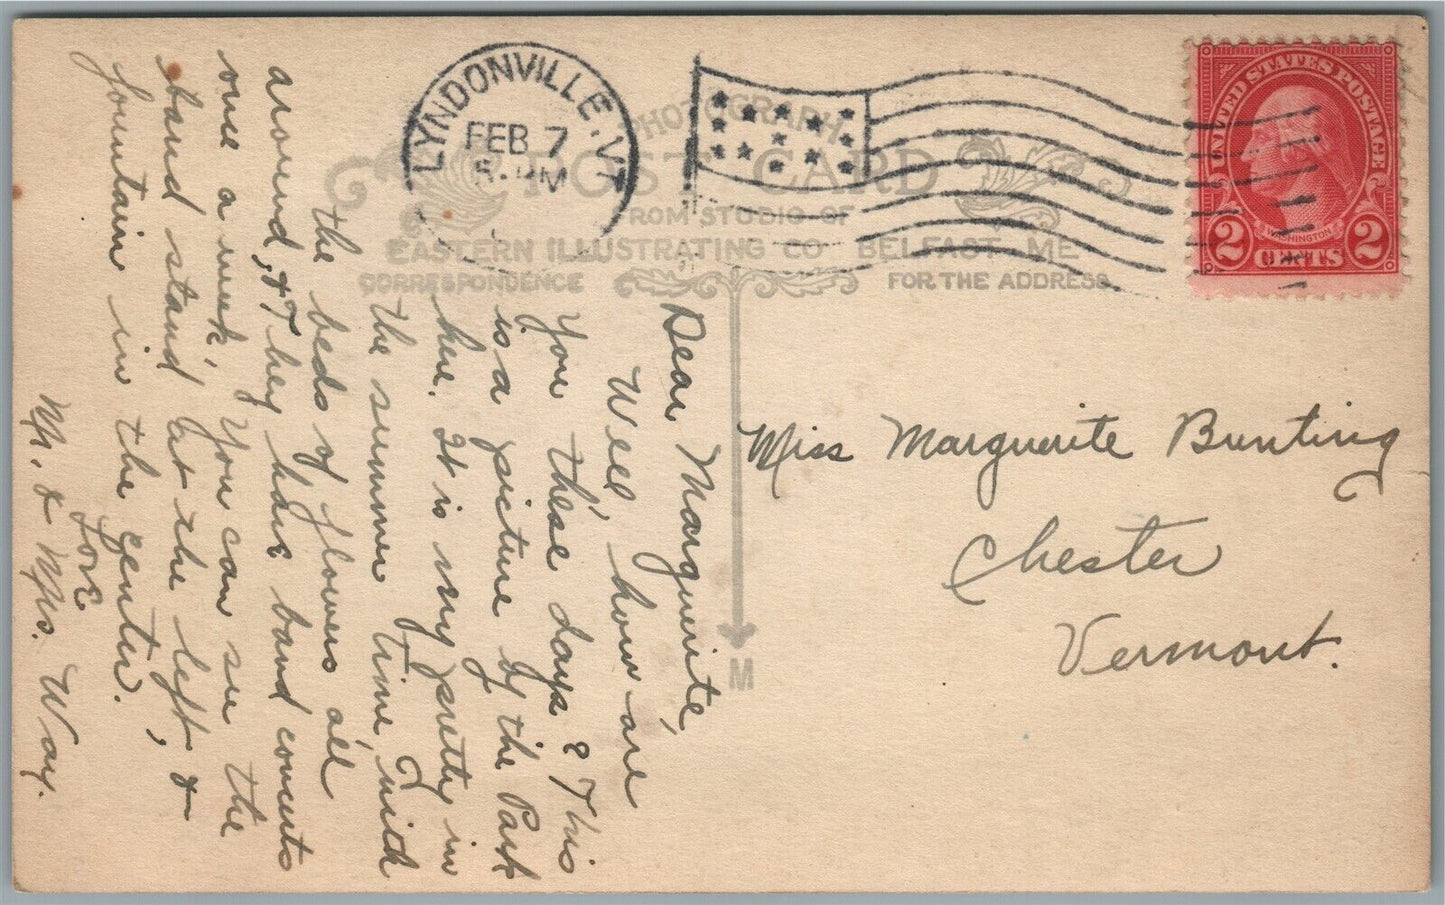 LYNDONVILLE. VT
FEB 7
PM
UNITED STATES POSTAGE
WASHINGTON
2 CENTS 2
PHOTOGRAPH
POST CARD
FROM STUDIO OF
EASTERN ILLUSTRATING CO BELFAST, ME
CORRESPONDENCE
FOR THE ADDRESS
M
Dear Marguerite,
Well, how are
you these days? This
is a picture of the Park
here. It is very pretty in
the summer time, with
the beds of flowers all
around, & They have band concerts
once a week. You can see the
band stand at the left, &
fountain in the center.
Love
Mr. & Mrs. Way.
Miss Marguerite Bunting
Chester
Vermont.